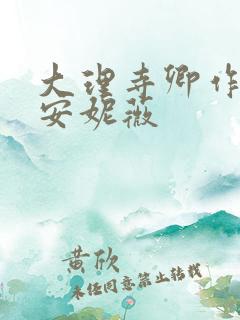 大理寺卿作
安妮薇
黄欣
未任同意禁止转载